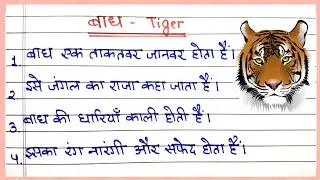 बाघ - Tiger
1. बाघ एक ताकतवर जानवर होता हैं।
2. इसे जंगल का राजा कहा जाता हैं।
3. बाघ की धारियाँ काली होती हैं।
4. इसका रंग नारंगी और सफेद होता हैं।